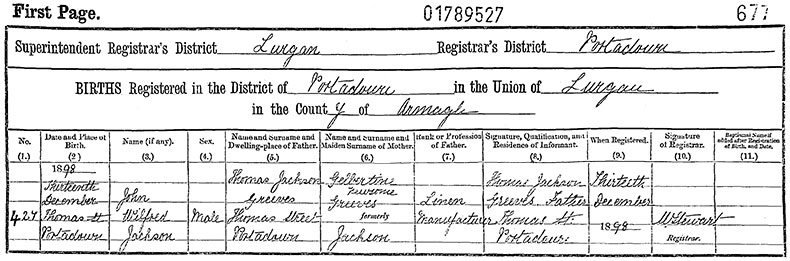 First Page. 01789527 677
Superintendent Registrar's District Lurgan Registrar's District Portadown
BIRTHS Registered in the District of Portadown in the Union of Lurgan
in the County of Armagh
No. Date and Place of Birth. Name (if any). Sex. Name and Surname and Dwelling-place of Father. Name and Surname and Maiden Surname of Mother. Rank or Profession of Father. Signature, Qualification, and Residence of Informant. When Registered. Signature of Registrar. Baptismal Name if added after Registration of Birth, and Date.
(1.) (2.) (3.) (4.) (5.) (6.) (7.) (8.) (9.) (10.) (11.)
1898 Thomas Jackson Thomas Jackson Thirteenth
Thirteenth Newsome
December John Greeves Greeves Linen Greeves Father December
427 Thomas St Wilfred Male Thomas Street formerly Manufacturer Thomas St. 1898 W Stewart
Portadown Jackson Portadown Jackson Portadown Registrar.